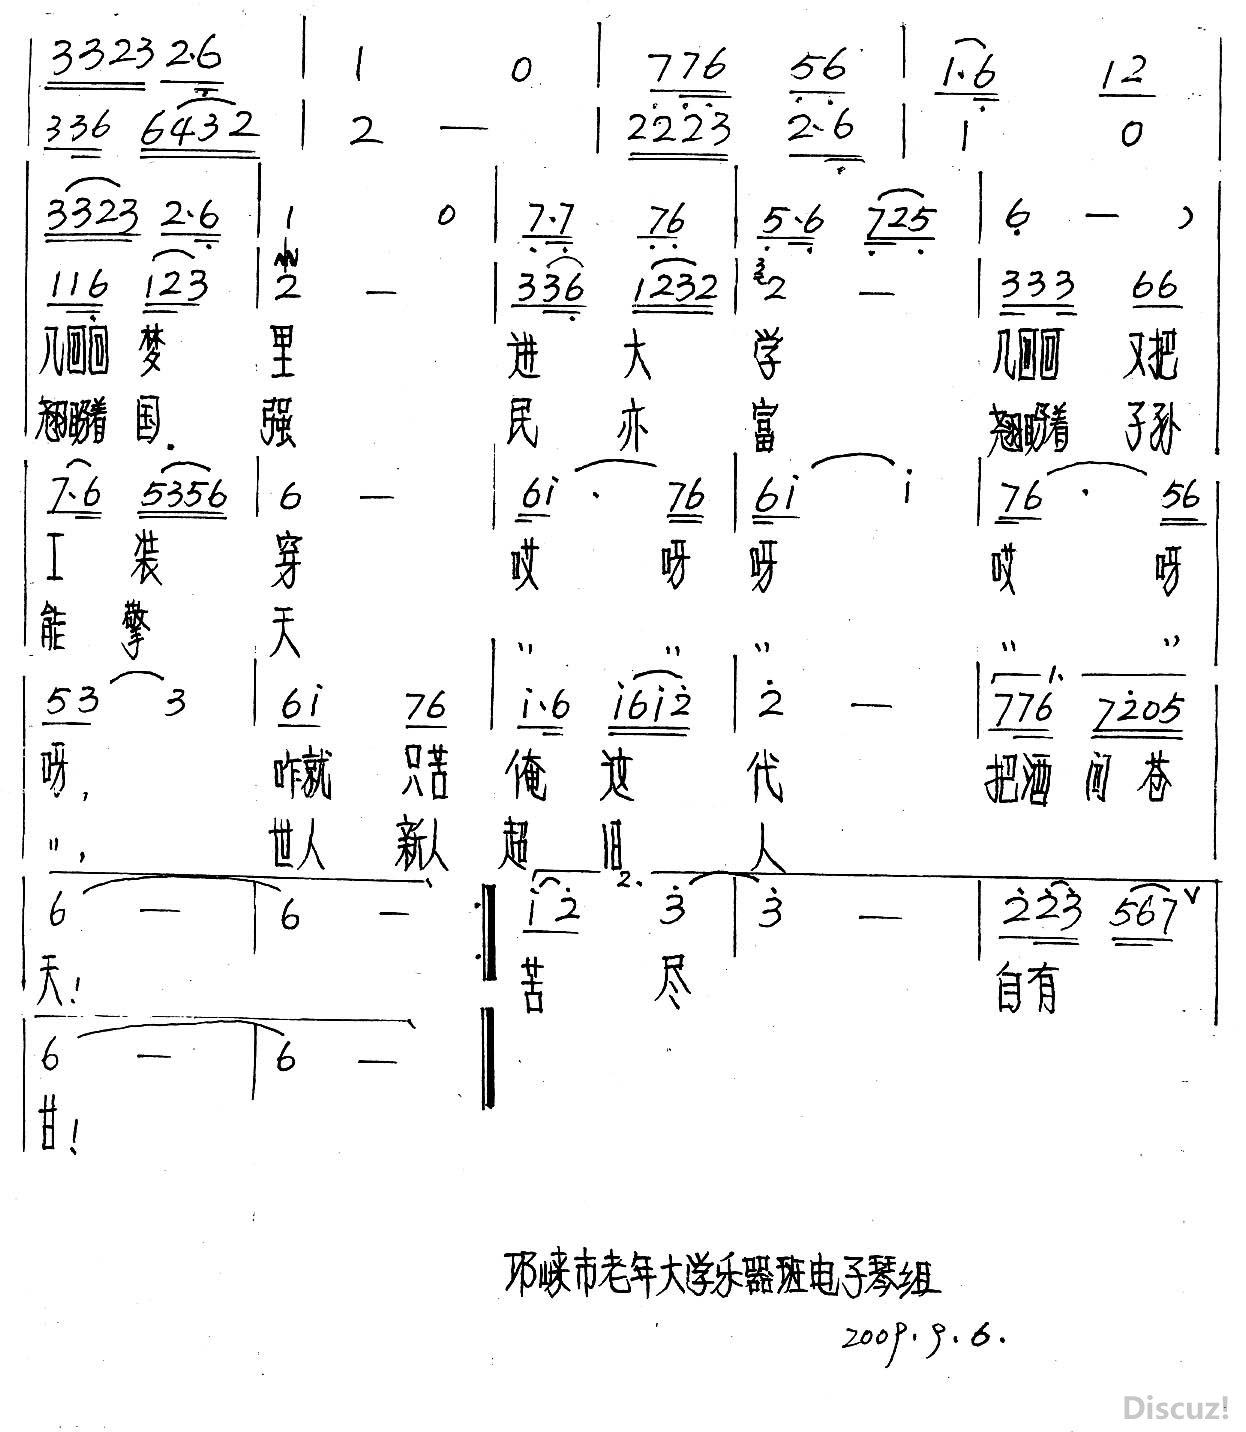 3323 2·6 | 1 0 | 776 56 | 1·6 12
336 6432 | 2 — | 2223 2·6 | 1 0
3323 2·6 | 1 0 | 7·7 76 | 5·6 725 | 6 — )
116 123 | 2 — | 336 1232 | 2 — | 333 66
几回回 梦 里 进 大 学 几回回 又把
翘盼着 国. 强 民 亦 富 翘盼着 子孙
7·6 5356 | 6 — | 6i · 76 | 6i i | 76 · 56
工 装 穿 哎 呀 呀 哎 呀
能 擎 天 〃 〃 〃 〃 〃
53 3 | 6i 76 | i·6 i6i2 | 2 — | 1. 776 7205
呀, 咋就 只苦 俺 这 代 把酒 问 苍
〃, 世人 新人 超 旧 人
6 — | 6 — :‖ 2. i2 3 | 3 — | 223 567 V
天! 苦 尽 自有
6 — | 6 — ‖
甘!
邛崃市老年大学乐器班电子琴组
2009.9.6.
Discuz!